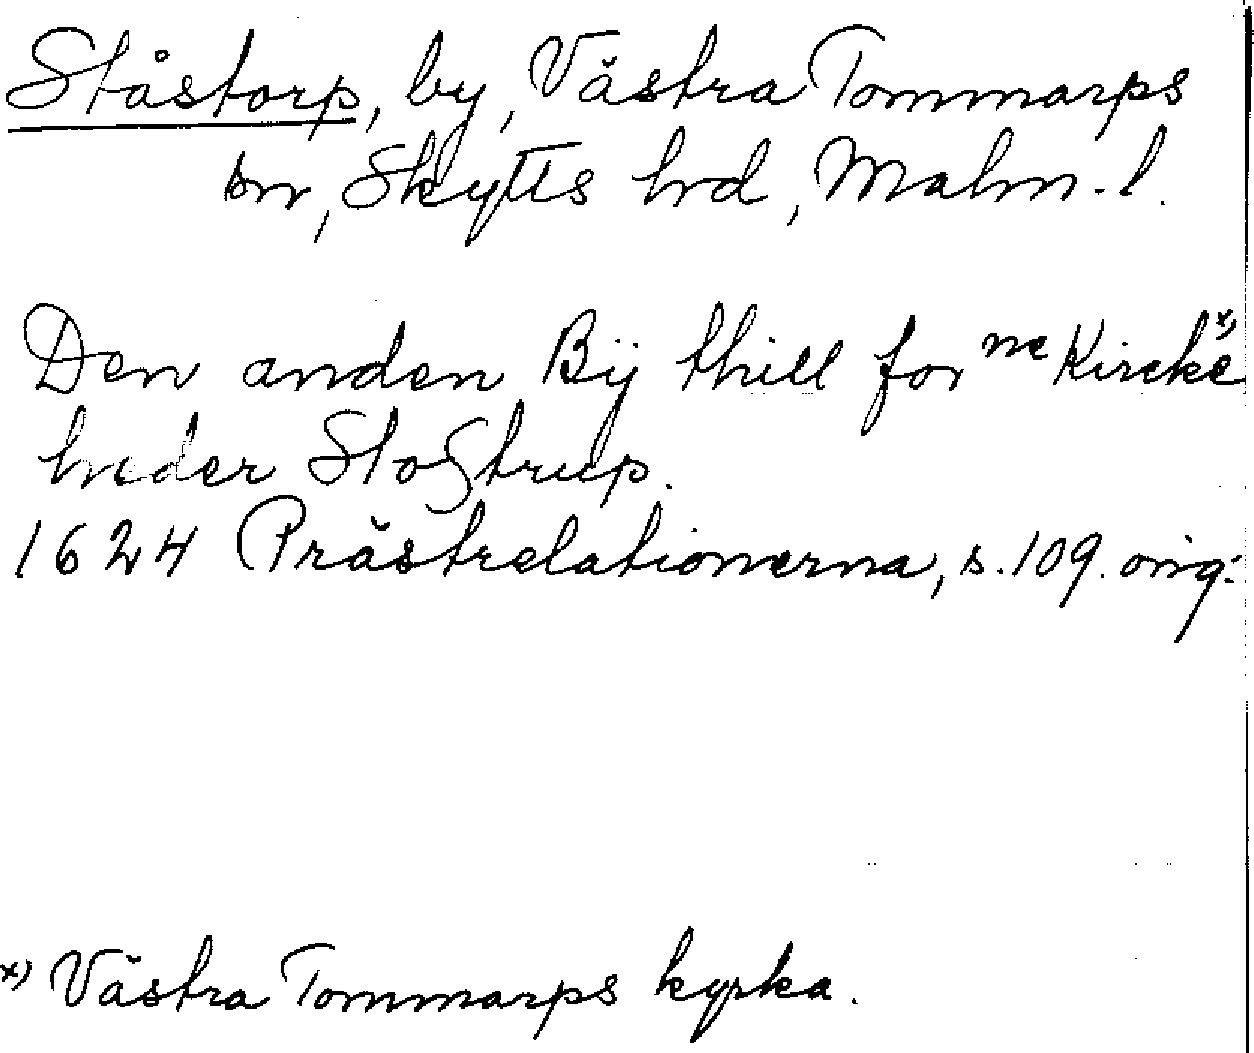 Ståstorp, by, Västra Tommarps
sn, Skytts hd, Malm. l.
Den anden Bÿ thill for ne Kircke x)
heder Stoßtrup.
1624 Prästrelationerna, s. 109. orig.
x) Västra Tommarps kyrka.